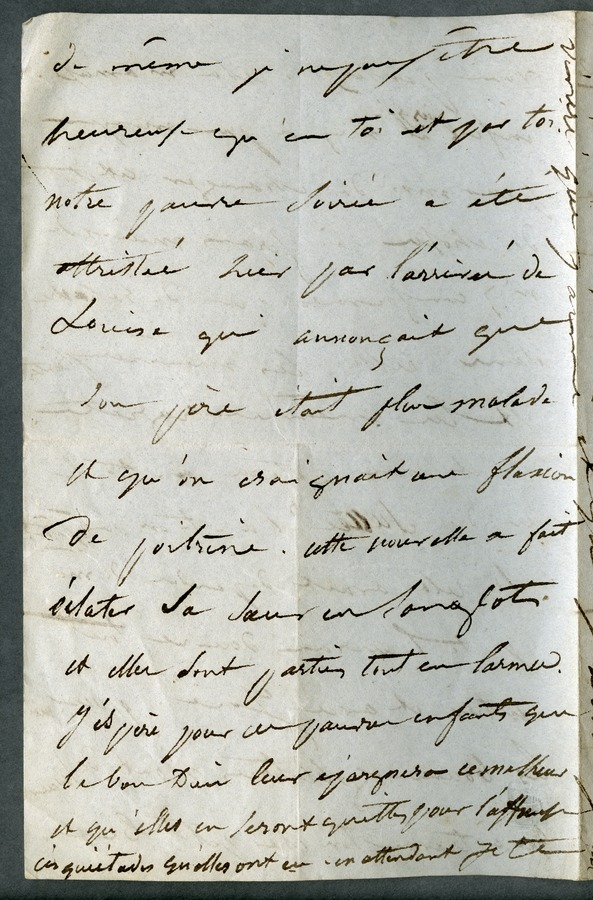 de même je ne puis être
heureuse qu'en toi et par toi
notre pauvre soirée a été
attristée hier par l'arrivée de
Louise qui annonçait que
son père était plus malade
et qu'on craignait une fluxion
de poitrine. cette nouvelle a fait
éclater sa sœur en sanglots
et elles sont parties tout en larmes.
j'espère pour ces pauvres enfants que
le bon Dieu leur épargnera ce malheur
et qu'elles en seront quittes pour l'affreuse
inquiétudes qu'elles ont eu. en attendant je te